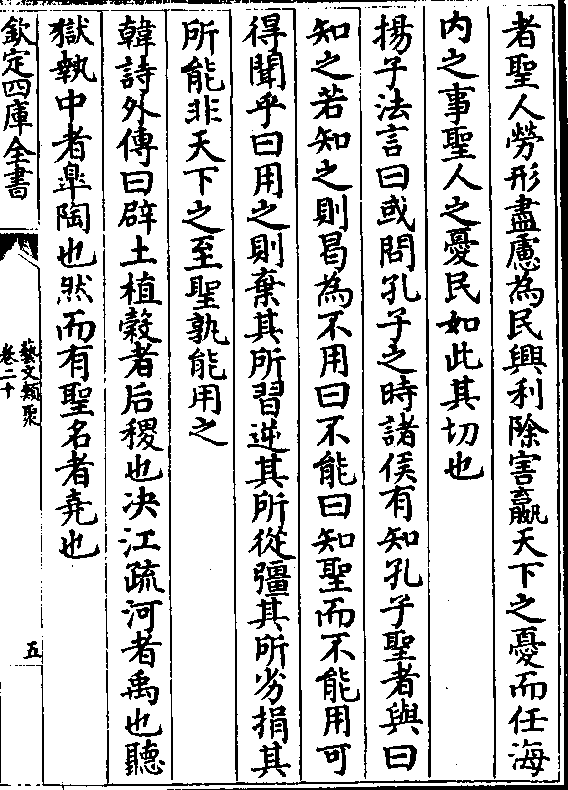 者聖人勞形盡慮為民興利除害嬴天下之憂而任海
内之事聖人之憂民如此其切也
揚子法言曰或問孔子之時諸侯有知孔子聖者與曰
知之若知之則曷為不用曰不能曰知聖而不能用可
得聞乎曰用之則棄其所習逆其所從彊其所劣捐其
所能非天下之至聖孰能用之
韓詩外傳曰辟土植榖者后稷也决江疏河者禹也聽
獄執中者臯陶也然而有聖名者堯也
欽定四庫全書
藝文類聚
卷二十
五